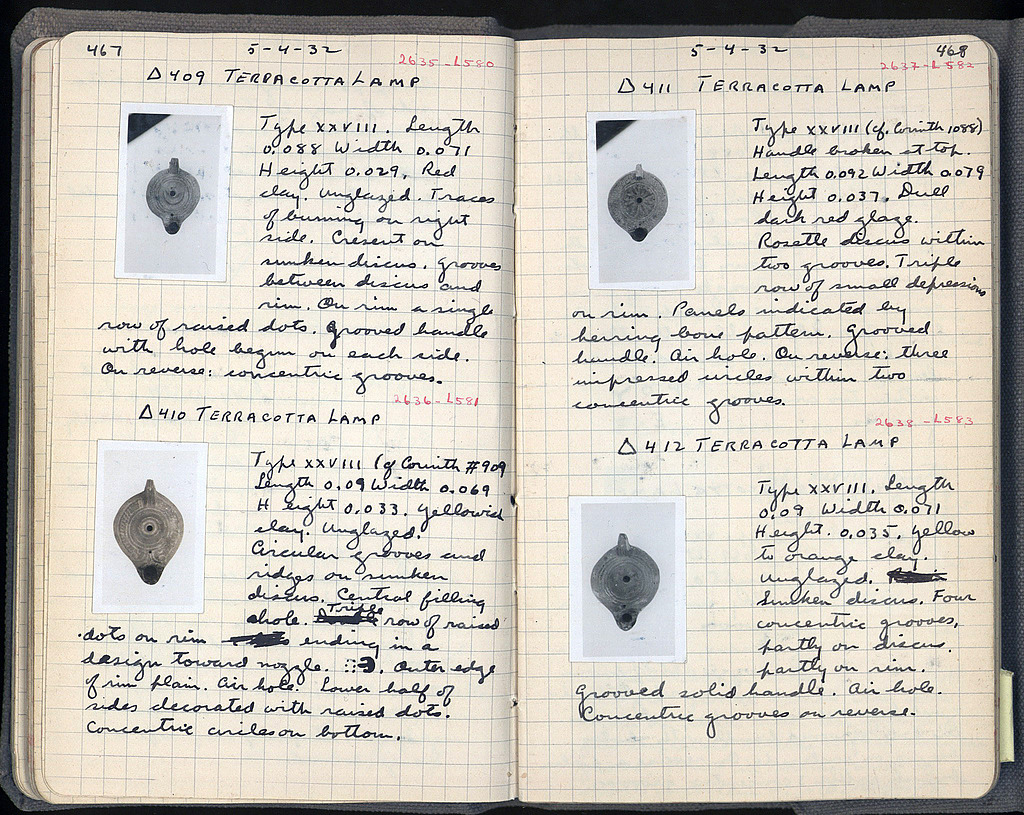 467 5-4-32
2635-L580
Δ409 TERRACOTTA LAMP
Type XXVIII. Length
0.088 Width 0.071
Height 0.029. Red
clay. Unglazed. Traces
of burning on right
side. Cresent on
sunken discus. Grooves
between discus and
rim. On rim a single
row of raised dots. Grooved handle
with hole begun on each side.
On reverse: concentric grooves.
2636-L581
Δ410 TERRACOTTA LAMP
Type XXVIII (cf Corinth #909
Length 0.09 Width 0.069
Height 0.033. Yellowish
clay. Unglazed.
Circular grooves and
ridges on sunken
discus. Central filling
hole. Triple row of raised
dots on rim ending in a
design toward nozzle. Outer edge
of rim plain. Air hole. Lower half of
sides decorated with raised dots.
Concentric circles on bottom.
5-4-32 468
2637-L582
Δ411 TERRACOTTA LAMP
Type XXVIII (cf. Corinth 1088)
Handle broken at top.
Length 0.092 Width 0.079
Height 0.037. Dull
dark red glaze.
Rosette discus within
two grooves. Triple
row of small depressions
on rim. Panels indicated by
herring bone pattern. Grooved
handle. Air hole. On reverse: three
impressed circles within two
concentric grooves.
2638-L583
Δ412 TERRACOTTA LAMP
Type XXVIII. Length
0.09 Width 0.071
Height. 0.035. Yellow
to orange clay.
Unglazed.
Sunken discus. Four
concentric grooves,
partly on discus,
partly on rim.
Grooved solid handle. Air hole.
Concentric grooves on reverse.